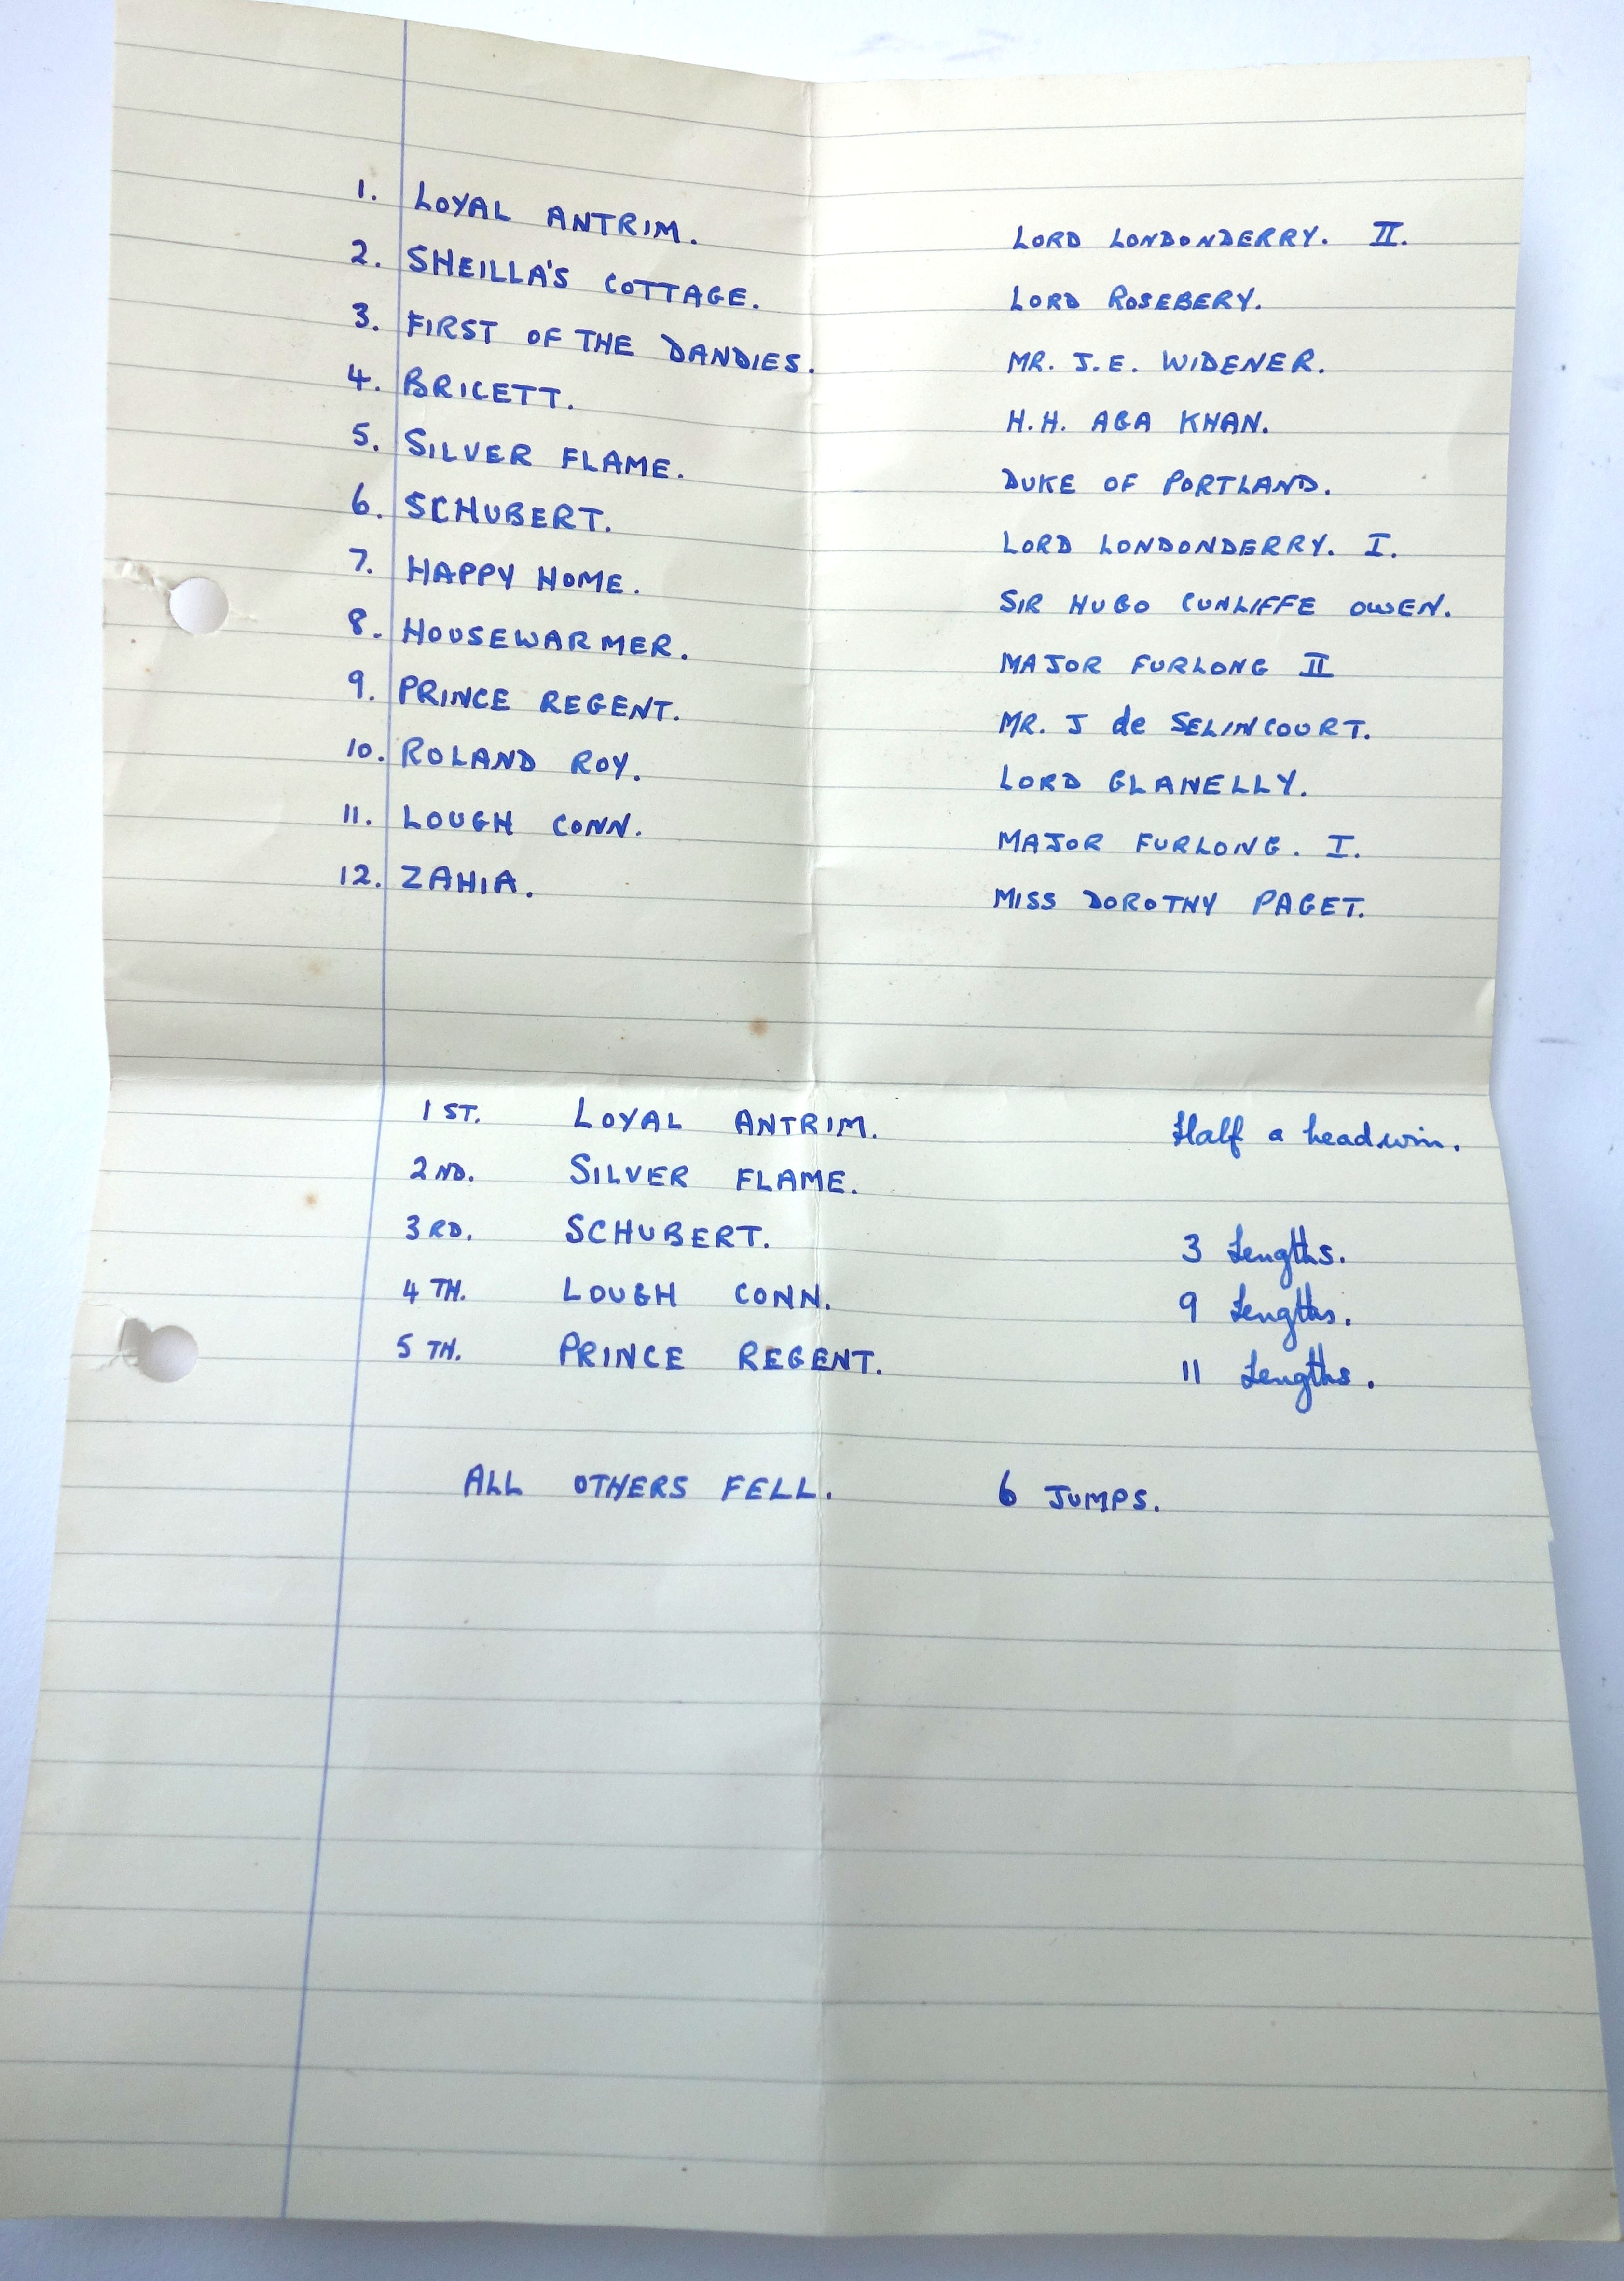 1. LOYAL ANTRIM. LORD LONDONDERRY. II.
2. SHEILLA'S COTTAGE. LORD ROSEBERY.
3. FIRST OF THE DANDIES. MR. J.E. WIDENER.
4. BRICETT. H.H. AGA KHAN.
5. SILVER FLAME. DUKE OF PORTLAND.
6. SCHUBERT. LORD LONDONDERRY. I.
7. HAPPY HOME. SIR HUGO CUNLIFFE OWEN.
8. HOUSEWARMER. MAJOR FURLONG II
9. PRINCE REGENT. MR. J de SELINCOURT.
10. ROLAND ROY. LORD GLANELLY.
11. LOUGH CONN. MAJOR FURLONG. I.
12. ZAHIA. MISS DOROTHY PAGET.
1ST. LOYAL ANTRIM. Half a head win.
2ND. SILVER FLAME.
3RD. SCHUBERT. 3 Lengths.
4TH. LOUGH CONN. 9 Lengths.
5TH. PRINCE REGENT. 11 Lengths.
ALL OTHERS FELL. 6 JUMPS.